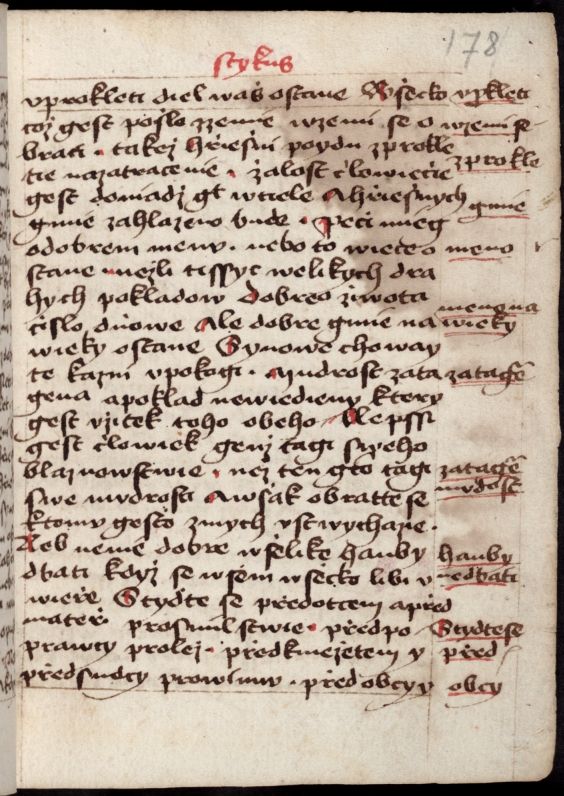 178
stykus
vprokleti diel waš ostane Wšecko
což gest pošlo zzemie wzemi se o
brati · takež hřiešni poydu zprokle
tie nazatracenie · žalost člowiečie
gest donidž gt wtiele Ahřiešnych
gmie zahlazeno bude · Peči mieg
odobrem menu · nebo to wieceo
stane · nežli tissyc welikych dra
hych pokladow Dobreo žiwota
čislo dnowe Ale dobre gmie na
wieky ostane Synowe choway
te kazni vpokogi · Mudrost zata
gena apoklad newiedieny ktery
gest vžitek toho obeho · Alepssi
gest člowiek genž tagi sweho
blaznowstwie · než ten gto tagi
swe mudrosti Awšak obratte se
ktomu gešto zmych vst wychazie ·
Neb nenie dobre wšelike hanby
dbati když se wšem wšecko libi v
wieře Stydte se předotcem apřed
mateři prosmilstwie · předpo
prawcy prolež · předkniezetem y
předsudcy prowinnu · předobcy y
vprkleti
wzemi se
zprokle
gmie
meno
meno na
wieky
zatagē
zatagē
mudost
hanby
nedbati
Stydtese
před
obcy